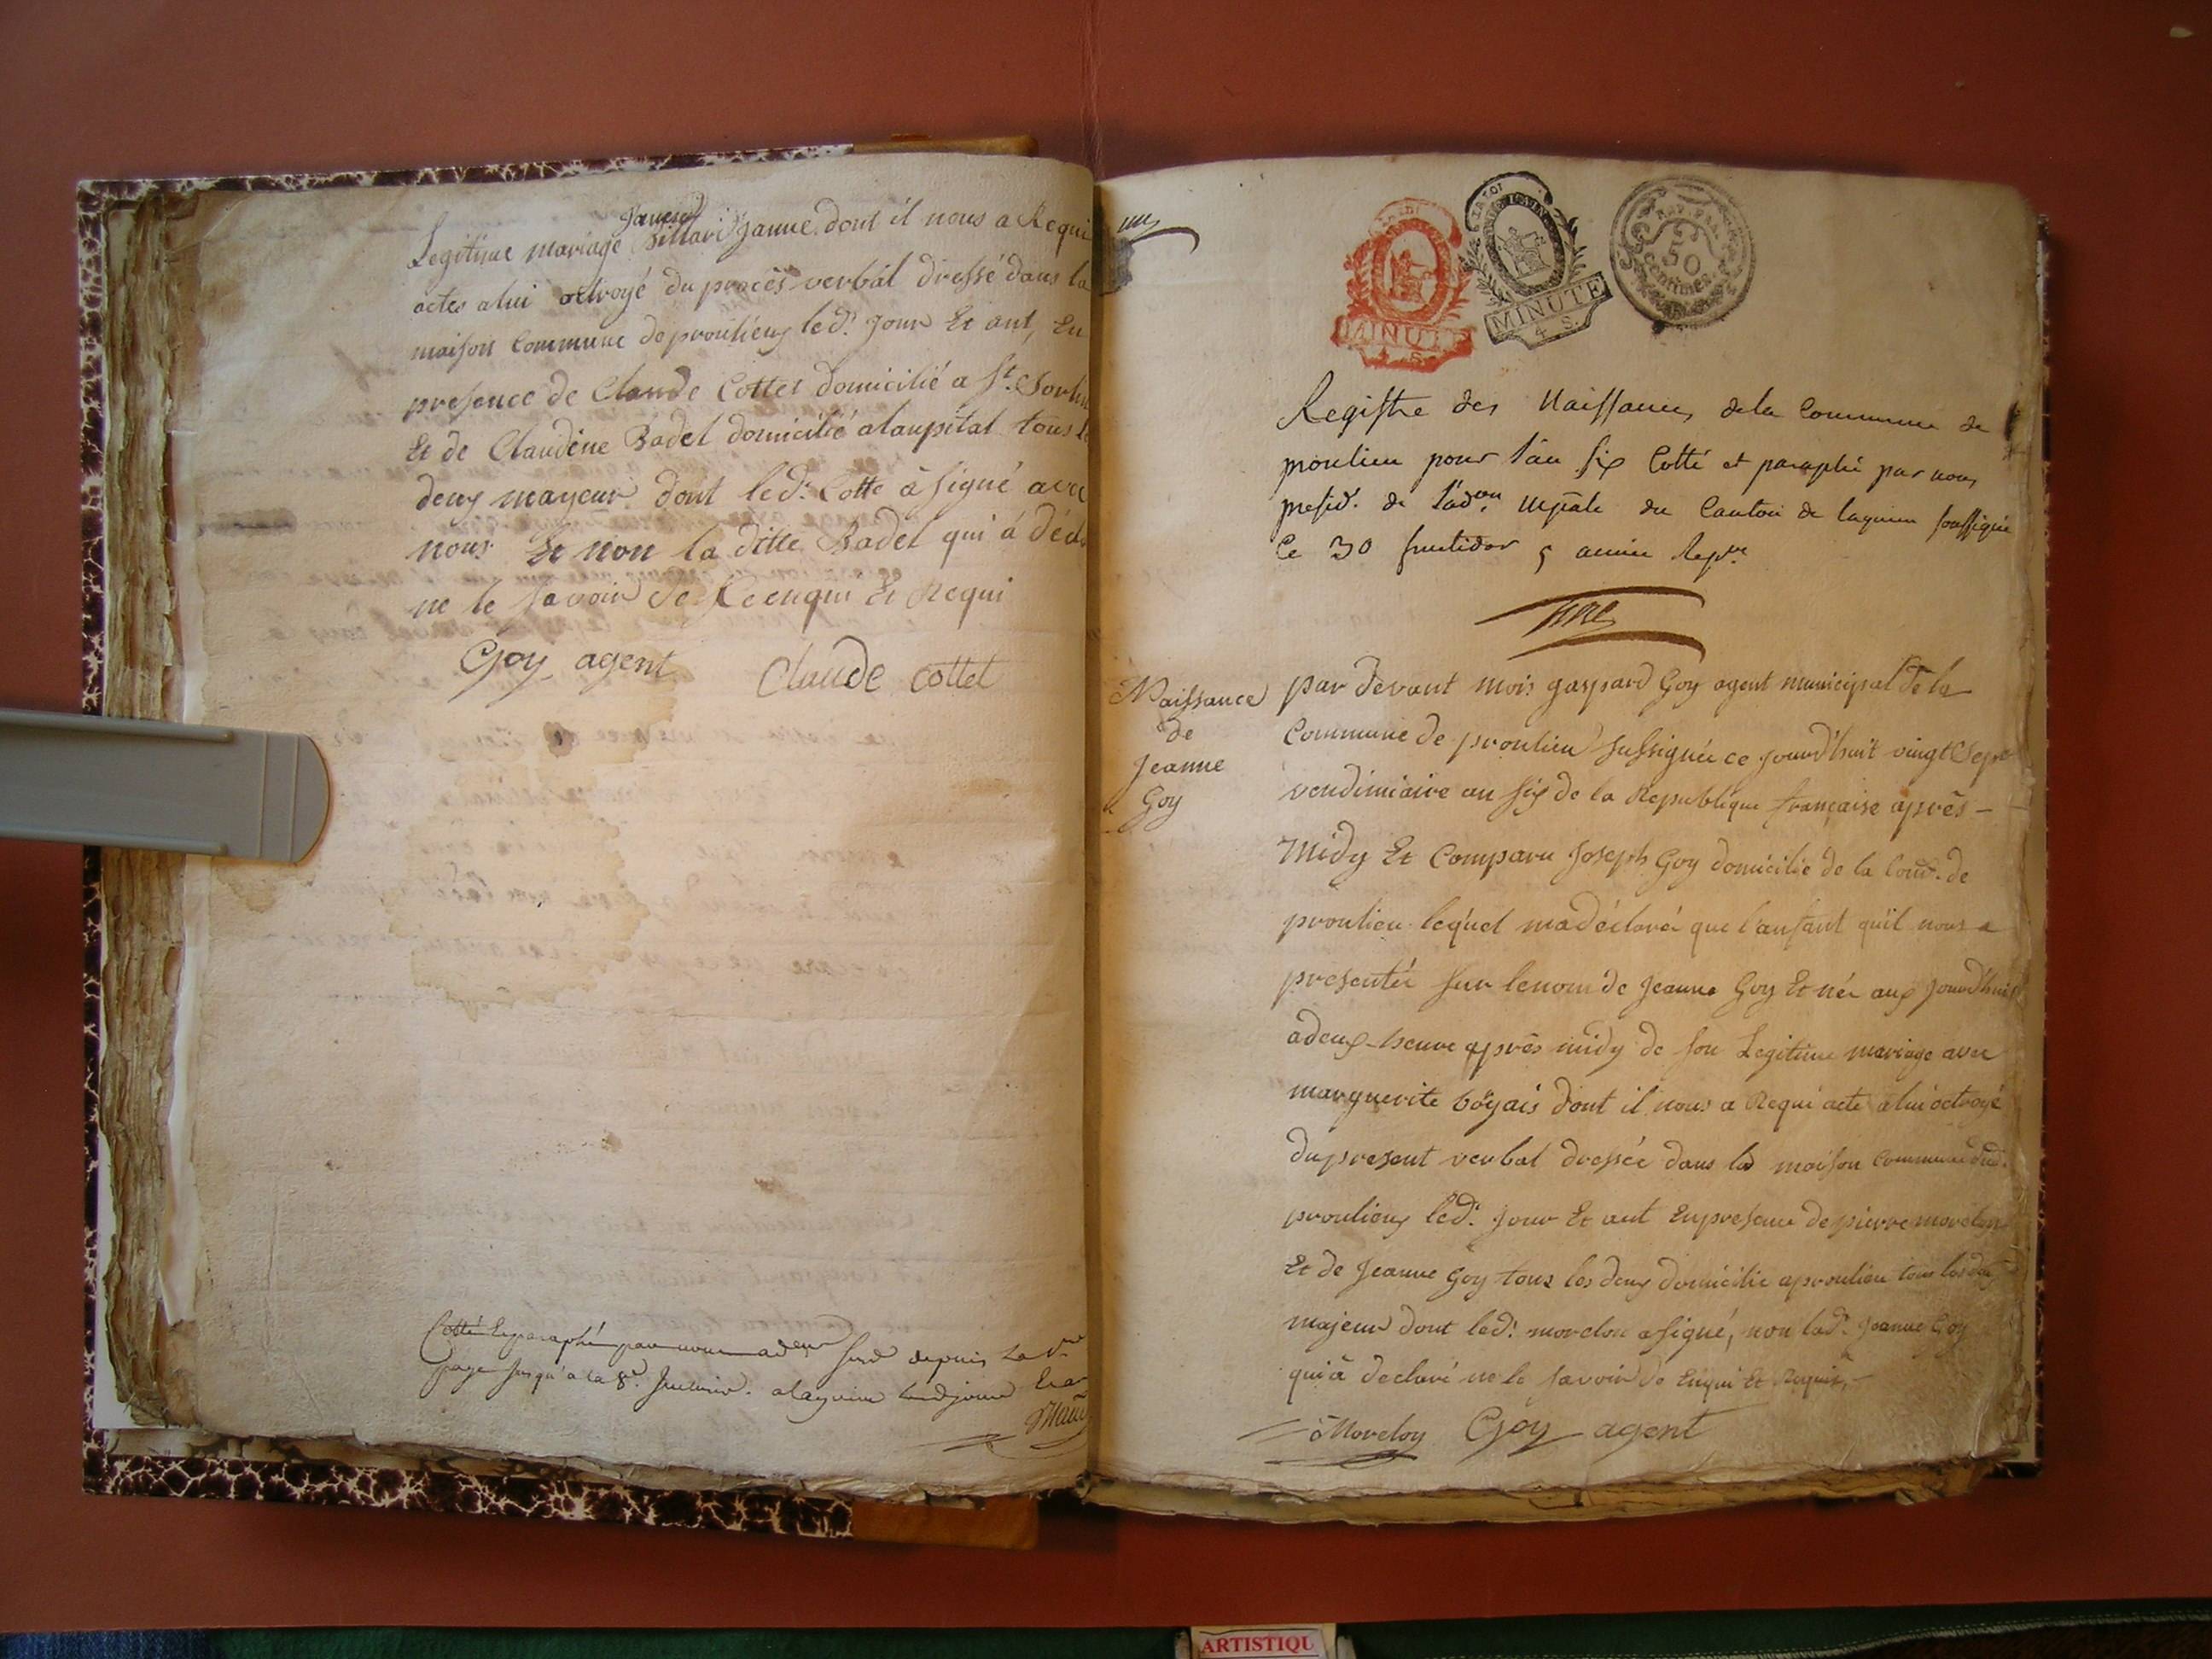 Janne
Legitime mariage Billard Janne dont il nous a Requi
actes a lui octroyé du procès verbal dressé dans la
maison Commune de proulieuz led. Jour Et ant, En
presence de Claude Cottet domicilié a St. Sorlin
Et de Claudine Badet domicilié alaupital tous l
deuz mayeur dont led. Cotte à signé avec
nous Et non la ditte Badet qui à décla
ne le savoir de Ce enqui Et Requi
Goy agent
Claude Cottet
Cotté Et paraphé par nous sus depuis la
page jusqu'a la 8e. a lagnieu
MINUTE
4 S.
MINUTE
4 S.
REP. FRA.
50
Centimes
Registre des Naissances dela Commune de
proulieu pour l'an six Cotté et paraphé par nous
presid. de l'adon. Mpale du Canton de lagnieu soussigné
le 30 fructidor 5 année Repne
Naissance
de
Jeanne
Goy
par Devant mois gaspard Goy agent municipal de la
Commune de proulieu sussignéé ce Jourd'huit vingt Sept
vendimiaire an six de la Republique française après-
Midy Et Comparu Joseph Goy domicilié de la Com. de
proulieu lequel ma déclaré que l'anfant qu'il nous a
presentéé sur le nom de Jeanne Goy Et néé aux Jourd'huit
adeux-heure après midy de son Legitime mariage avec
marguerite böyais dont il nous a Requi acte a lui octroyé
du present verbal dressée dans la maison Commune dud.
proulieuz led. Jour Et ant En presence de pierre morelon
Et de Jeanne Goy tous les deuz domicilié a proulieu tous les deuz
majeur dont led. morelon a signé, non lad. Jeanne Goy
qui à déclaré ne le savoir de Enqui Et Requis,-
Moreloy Goy agent
ARTISTIQU